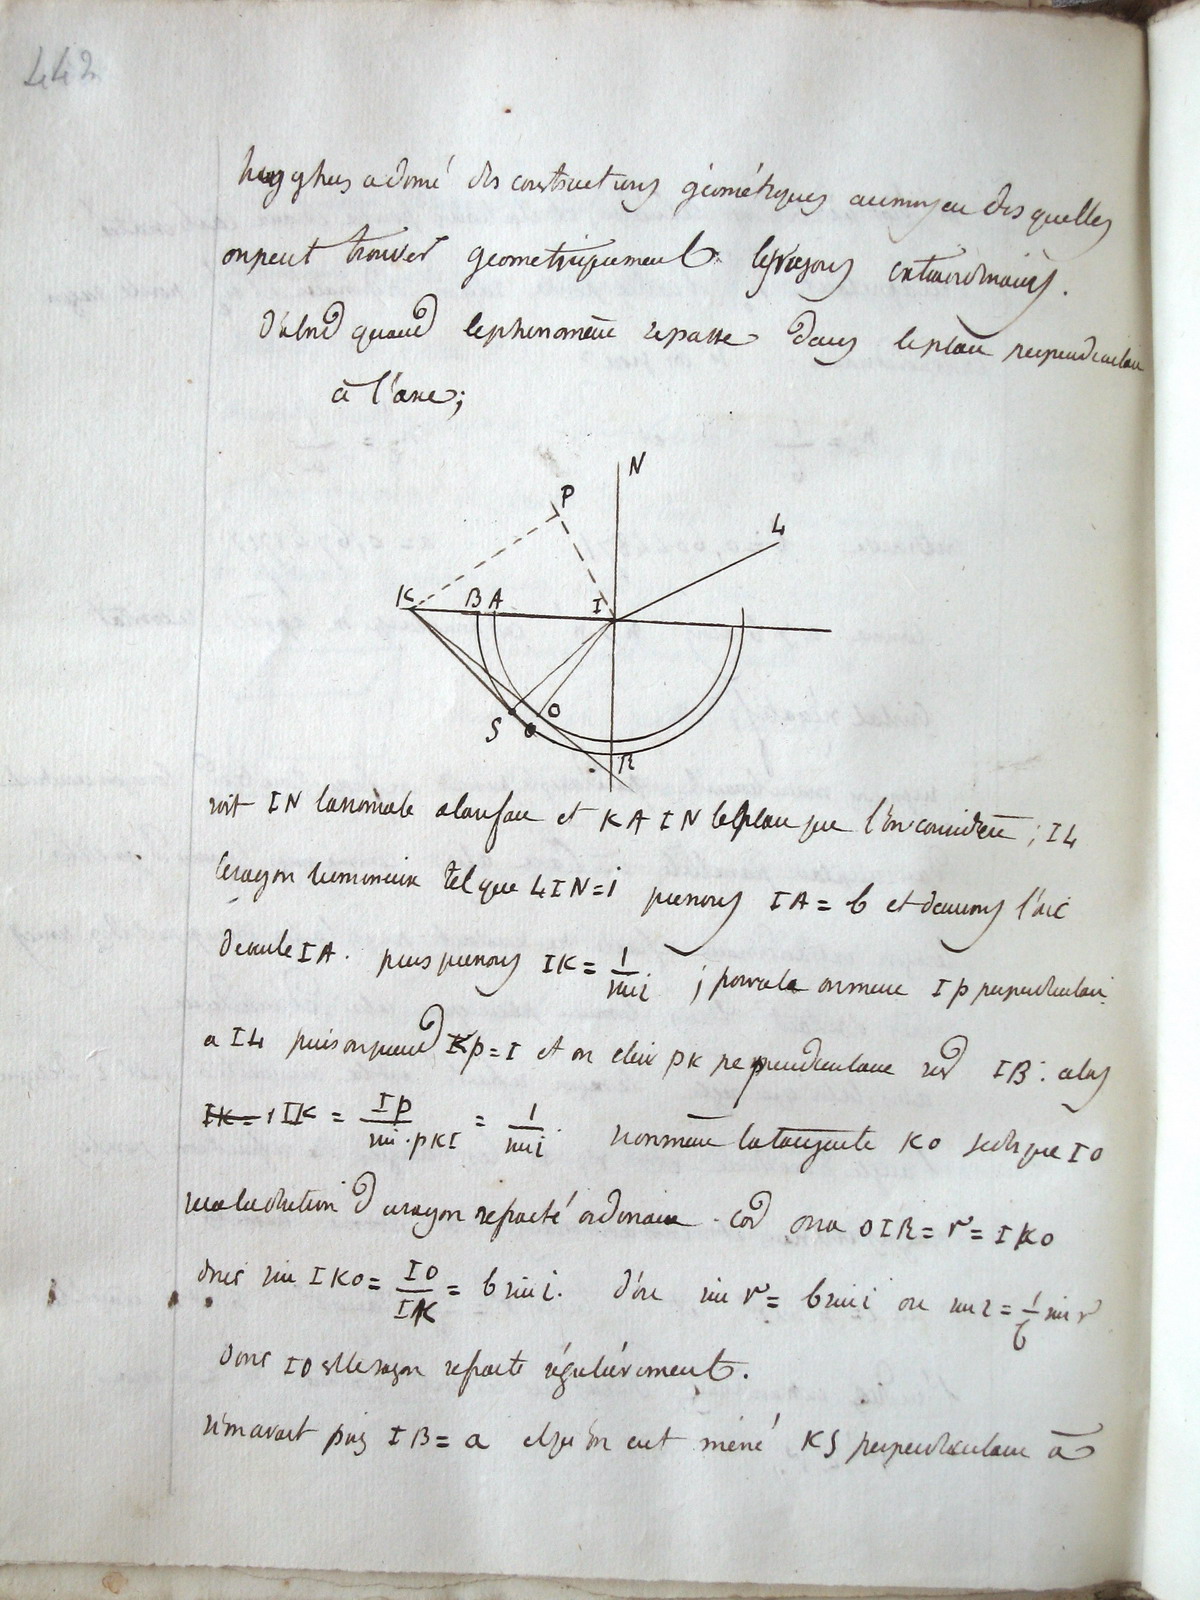 442
huyghes a donné des constructions géométriques au moyen des quelles
on peut trouver geometriquement les rayons extraordinaires.
D'abord quand le phenomène se passe dans le plan perpendiculaire
à l'axe;
N
P
L
K B A I
S O
R
soit IN la normale a la surface et KAIN le plan que l'on considère; IL
le rayon lumineux tel que LIN=i prenons IA = b et decrivons l'arc
de cercle IA. puis prenons IK = 1/sin i ; pour cela on mene Ip perpendiculaire
a IL puis on prend Kp=I et on elève pK perpendiculaire sur IB. alors
IK = IK = Ip/sin.pKI = 1/sin i. si on mène la tangente KO je dis que IO
sera la direction d'un rayon refracté ordinaire. car on a OIR = r = IKO
donc sin IKO = IO/IK = b sin i. d'où sin r = b sin i ou sin i = 1/b sin r
donc IO est le rayon refracté régulièrement.
si on avait pris IB = a et qu'on eut mené KS perpendiculaire à